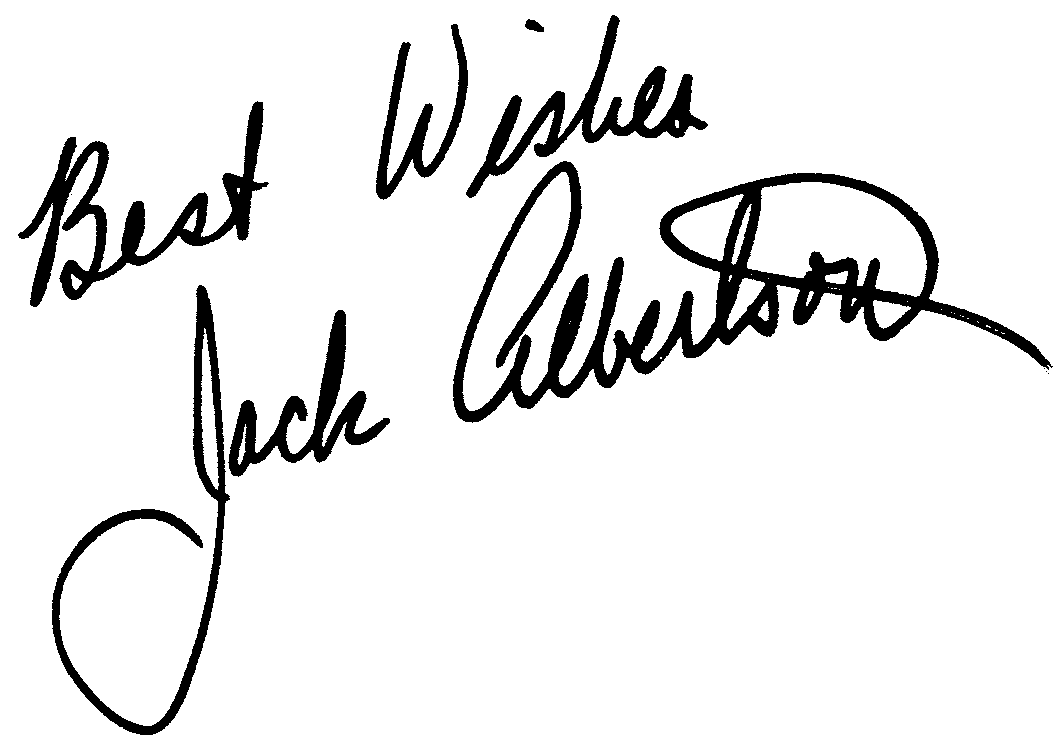 Best Wishes
Jack Albertson